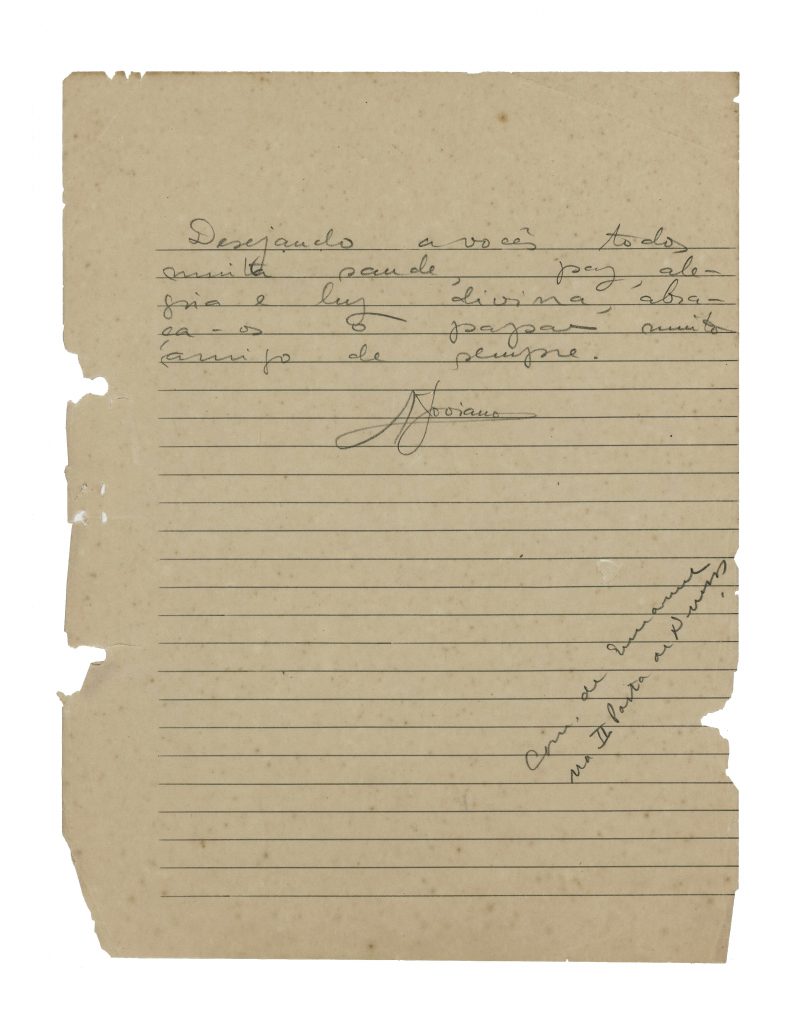 Desejando a vocês todos
muita saude, paz, ale-
gria e luz divina, abra-
ça-os o papae muito
amigo de sempre.
Com. de Emmanuel
na II Pasta de